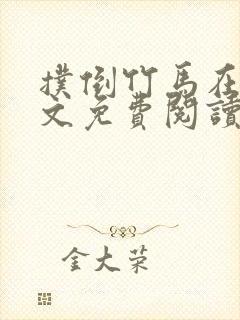 撲倒竹馬在
文免費閱讀
金大荣